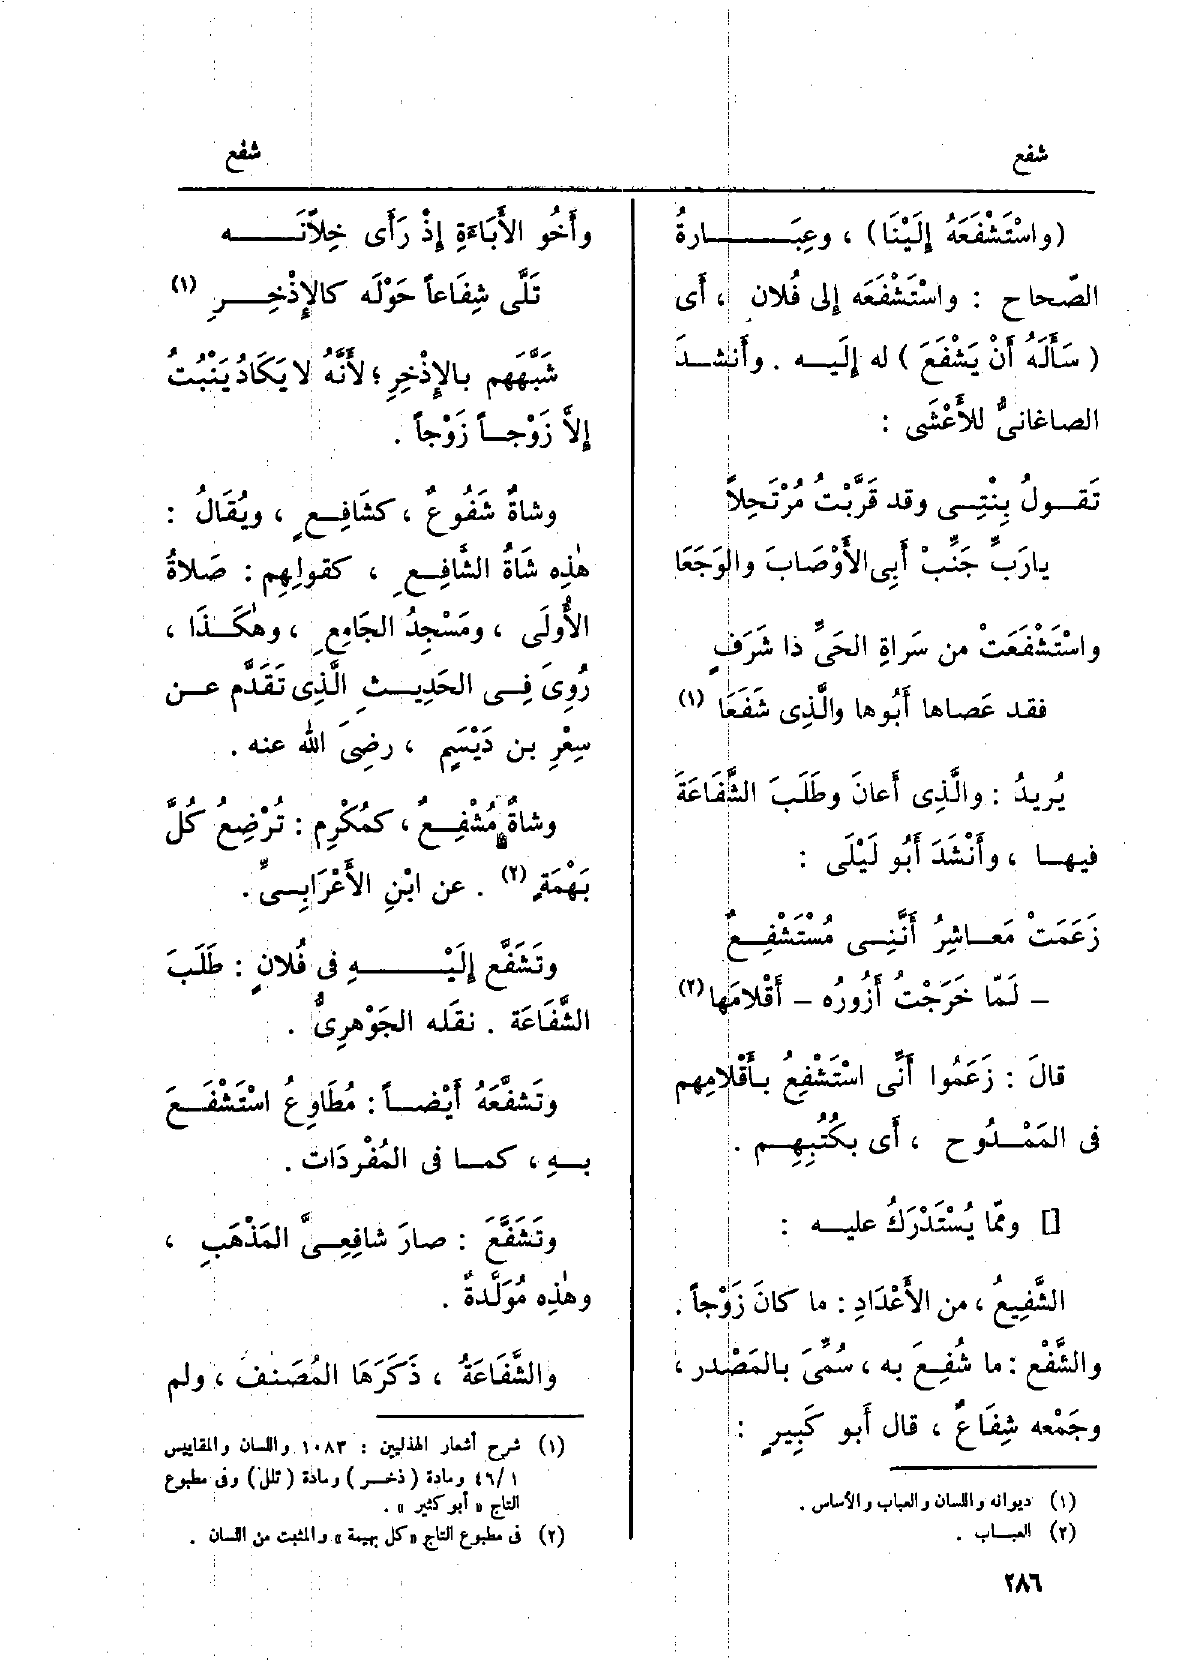 شفع
شفع
(واسْتَشْفَعَهُ إِلَيْنَا) ، وعِبَـارةُ
الصّحاح : واسْتَشْفَعَه إلى فُلانٍ ، أَى
( سَأَلَهُ أَنْ يَشْفَعَ ) له إِلَيـه . وأَنشـدَ
الصاغانىُّ للأَعْشَى :
تَقـولُ بِنْتِـى وقد قَرَّبْتُ مُرْتَحِلاً
يارَبِّ جَنِّبْ أَبِى الأَوْصَابَ والوَجَعَا
واسْتَشْفَعَتْ من سَراةِ الحَىِّ ذا شَرَفٍ
فقـد عَصاها أَبُوها والَّذِى شَفَعَا (١)
يُرِيدُ : والَّذِى أَعانَ وطَلَبَ الشَّفَاعَةَ
فيهـا ، وأَنْشَدَ أَبُو لَيْلَى :
زَعَمَتْ مَعـاشِرُ أَنَّنِـى مُسْتَشْفِـعٌ
– لَمّا خَرَجْتُ أَزُورُه – أَقْلامَها (٢)
قالَ : زَعَمُوا أَنِّى اسْتَشْفِعُ بـأَقْلامِهم
فى المَمْـدُوح ، أَى بكُتُبِهِـم .
[] وممّا يُسْتَدْرَكُ عليـه :
الشَّفِيعُ ، من الأَعْدَادِ : ما كانَ زَوْجاً .
والشَّفْع : ما شُفِعَ به ، سُمِّىَ بالمَصْدر ،
وجَمْعه شِفَاعٌ ، قال أَبو كَبِيرٍ :
(١) ديوانه واللسان والعباب والأساس .
(٢) العبـاب .
٢٨٦
وأَخُو الأَبَاءَةِ إِذْ رَأَى خِلاَّنَـه
تَلَّى شِفَاعاً حَوْلَه كالإِذْخِـرِ (١)
شَبَّهَهم بالإِذْخِرِ ؛ لأَنَّهُ لا يَكَادُ يَنْبُتُ
إِلاَّ زَوْجـاً زَوْجاً .
وشاةٌ شَفُوعٌ ، كشَافِـعٍ ، ويُقَالُ :
هٰذِه شَاةُ الشَّافِـعِ ، كقولِهِم : صَلاةُ
الأُولَى ، ومَسْجِدُ الجَامِعِ ، وهٰكَـذَا ،
رُوِىَ فِـى الحَدِيـثِ الَّذِى تَقَدَّم عـن
سِعْرِ بن دَيْسَمٍ ، رضِىَ الله عنه .
وشاةٌ مُشْفِـعٌ ، كمُكْرِم : تُرْضِعُ كُلَّ
بَهْمَةٍ (٢) . عن ابْنِ الأَعْرَابِـىِّ .
وتَشَفَّع إِلَيْـهِ فى فُلانٍ : طَلَبَ
الشَّفَاعَة . نقَله الجَوْهرِىُّ .
وتَشفَّعَهُ أَيْضـاً : مُطَاوِعُ اسْتَشْفَـعَ
بـهِ ، كمـا فى المُفْردَات .
وتَشَفَّعَ : صارَ شافِعِـىَّ المَذْهَبِ ،
وهٰذِه مُوَلَّدةٌ .
والشَّفَاعَةُ ، ذَكَرَهَا المُصَنف ، ولم
(١) شرح أشعار الهذليين : ١٠٨٣ واللسان والمقاييس
٤٦/١ ومادة ( ذخـر ) ومادة ( تلل ) وفى مطبوع
التاج « أبو كثير » .
(٢) فى مطبوع التاج « كل بهيمة » والمثبت من اللسان .